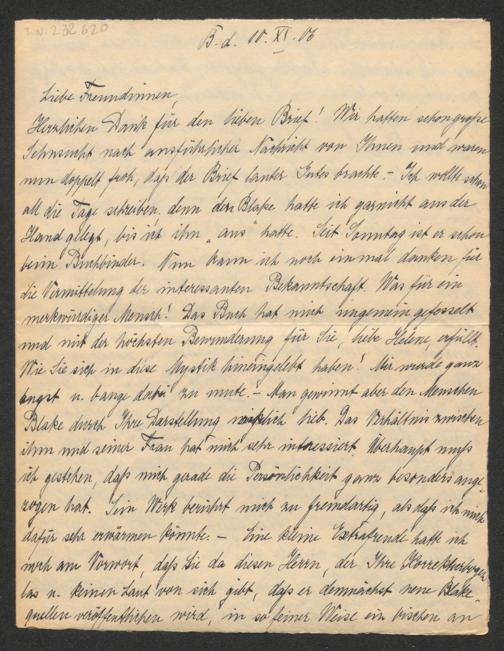 I.N. 232620
B. d. 10. XI. 06
Liebe Freundinnen,
Herzlichen Dank für den lieben Brief! Wir hatten schon große
Sehnsucht nach ausführlicher Nachricht von Ihnen und waren
nun doppelt froh, daß der Brief lauter Gutes brachte. - Ich wollte schon
all die Tage schreiben, denn den Blake hatte ich garnicht aus der
Hand gelegt, bis ich ihn "aus" hatte. Seit Sonntag ist er schon
beim Buchbinder. Nun kann ich noch einmal danken für
die Vermittelung der interessanten Bekanntschaft. Was für ein
merkwürdiger Mensch! Das Buch hat mich ungemein gefesselt
und mit der höchsten Bewunderung für Sie, liebe Helene, erfüllt.
Wie Sie sich in diese Mystik hineingelebt haben! Mir wurde ganz
angst u. bange dabei zu mute. - Man gewinnt aber den Menschen
Blake durch Ihre Darstellung wirklich lieb. Das Verhältnis zwischen
ihm und seiner Frau hat mich sehr interessiert. Überhaupt muß
ich gestehen, daß mich gerade die Persönlichkeit ganz besonders ange
zogen hat. Sein Werk berührt mich zu fremdartig, als daß ich mich
dafür sehr erwärmen könnte. - Eine kleine Extrafreude hatte ich
noch am Vorwort, daß Sie da diesen Herrn, der Ihre
las u. keinen Laut von sich gibt, daß er demnächst neue Blake
quellen veröffentlichen wird, in so feiner Weise ein bischen an